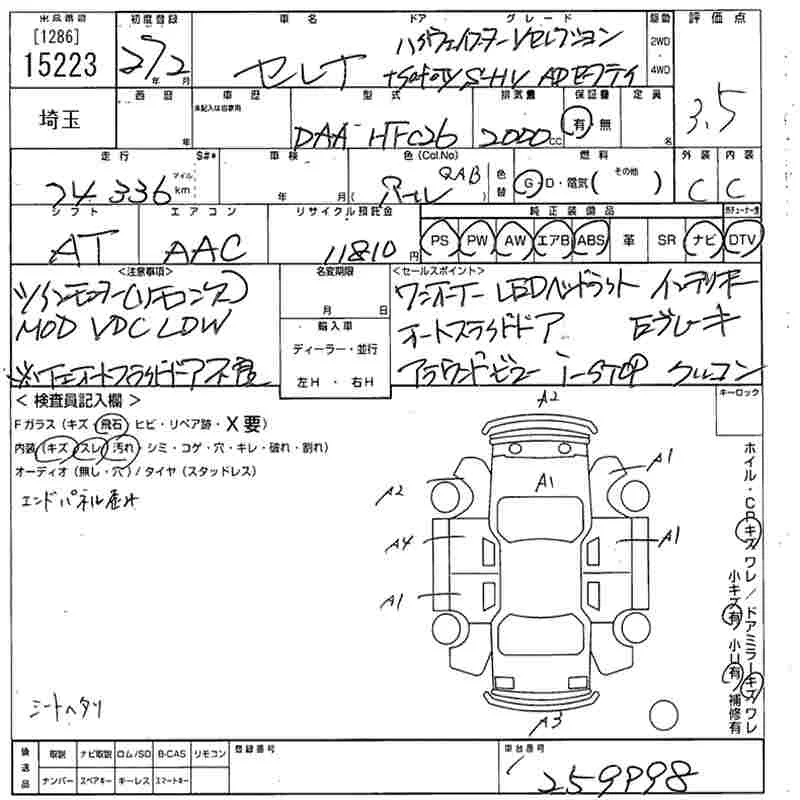 出品番号
[1286]
15223
初度登録
27/2
年 月
車名
セレナ
ドア グレード
ハイウェイスターVセレクション
+Safety S-HV ADセフティ
駆動
2WD
4WD
評価点
3.5
埼玉
西暦
年
車歴
未記入は自家用
型式
DAA-HFC26
排気量
2000cc
保証書
有・無
定員
名
走行
24,336
マイル
km
S#*
車検
年 月
色(Col.No)
パール QAB
色替
燃料
G・D・電気( その他 )
外装
C
内装
C
シフト
AT
エアコン
AAC
リサイクル預託金
11810円
純正装備品
PS PW AW エアB ABS 革 SR ナビ DTV
<注意事項>
ツインモニター(リモコン×)
MOD VDC LDW
※左オートスライドドア不良
名変期限
月 日
輸入車
ディーラー・並行
左H ・ 右H
<セールスポイント>
ワンオーナー LEDヘッドライト インテリキー
オートスライドドア Eブレーキ
アラウンドビュー i-STOP クルコン
キーロック
< 検査員記入欄 >
Fガラス (キズ・飛石 ヒビ・リペア跡・X要)
内装 (キズ・スレ・汚れ・シミ・コゲ・穴・キレ・破れ・割れ)
オーディオ (無し・穴) / タイヤ (スタッドレス)
エンドパネル歪み
シートヘタリ
A2
A1
A1
A2
A4
A1
A1
A3
ホイル・CPキズワレ/ドアミラーキズワレ
小キズ有 小U有 補修有
後送品
取説 ナビ取説 ロム/SD B-CAS リモコン
ナンバー スペアキー キーレス スマートキー
登録番号
車台番号
259998